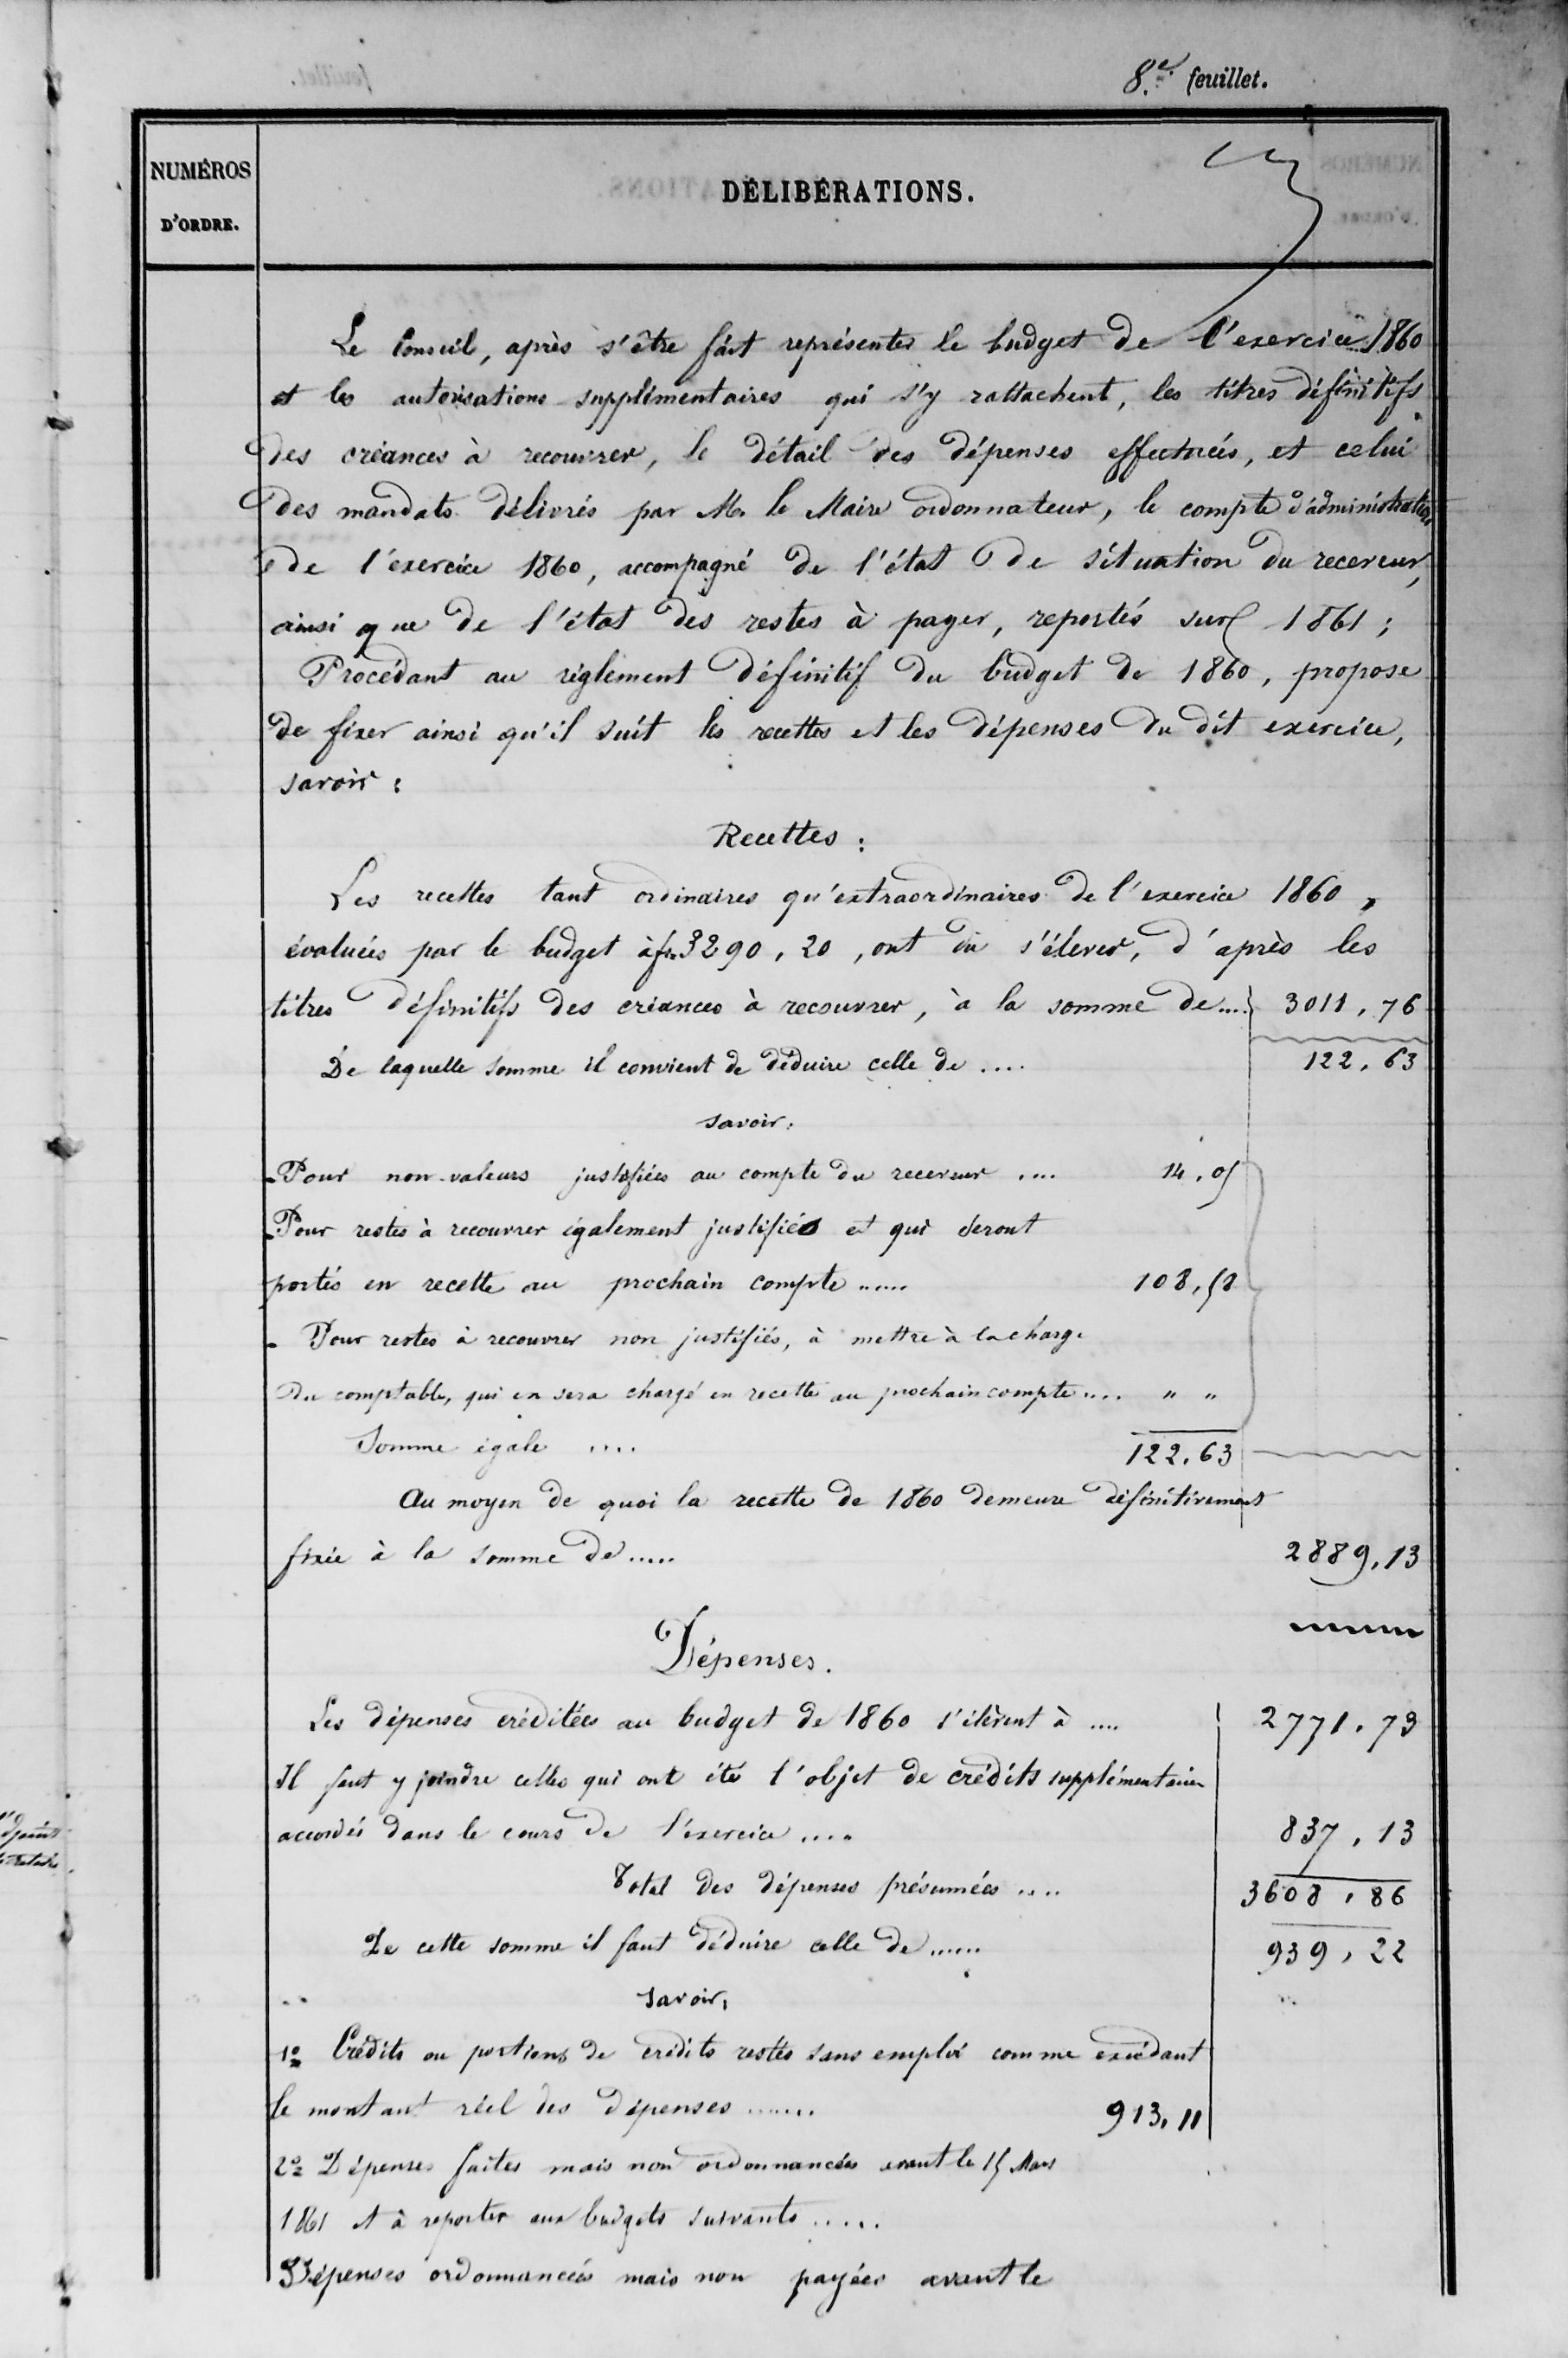 8.e feuillet.
NUMÉROS
D'ORDRE.
DÉLIBÉRATIONS.
Le Conseil, après s'être fait représenter le budget de l'exercice 1860
et les autorisations supplémentaires qui s'y rattachent, les titres définitifs
des créances à recouvrer, le détail des dépenses effectuées, et celui
des mandats délivrés par M. le Maire ordonnateur, le compte d'administration
de l'exercice 1860, accompagné de l'état de situation du receveur,
ainsi que de l'état des restes à payer, reportés sur 1861 ;
Procédant au règlement définitif du budget de 1860, propose
de fixer ainsi qu'il suit les recettes et les dépenses du dit exercice,
savoir :
Recettes :
Les recettes tant ordinaires qu'extraordinaires de l'exercice 1860,
évaluées par le budget à fr. 3290,20, ont dû s'élever, d'après les
titres définitifs des créances à recouvrer, à la somme de.... 3011,76
De laquelle somme il convient de déduire celle de .... 122,63
savoir :
- Pour non-valeurs justifiées au compte du receveur .... 14,05
- Pour restes à recouvrer également justifiés et qui seront
portés en recette au prochain compte ..... 108,58
- Pour restes à recouvrer non justifiés, à mettre à la charge
du comptable, qui en sera chargé en recette au prochain compte .... " "
Somme égale .... 122,63
Au moyen de quoi la recette de 1860 demeure définitivement
fixée à la somme de ..... 2889,13
Dépenses.
Les dépenses créditées au budget de 1860 s'élèvent à .... 2771,73
Il faut y joindre celles qui ont été l'objet de crédits supplémentaires
accordés dans le cours de l'exercice .... 837,13
Total des dépenses présumées .... 3608,86
De cette somme il faut déduire celle de ...... 939,22
savoir,
1° Crédits ou portions de crédits restés sans emploi comme excédant
le montant réel des dépenses ....... 913,11
2° Dépenses faites mais non ordonnancées avant le 15 Mars
1861 et à reporter aux budgets suivants .....
3° Dépenses ordonnancées mais non payées avant le